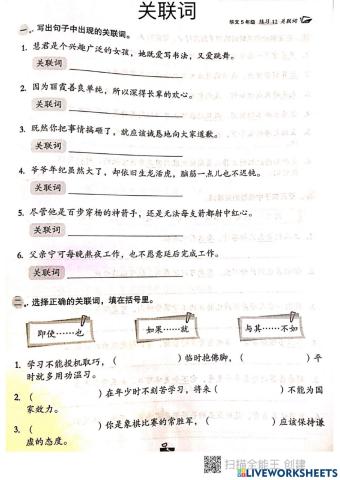 关联词
华文5年级 练习12 关联词
一、写出句子中出现的关联词。
1. 慧君是个兴趣广泛的女孩，她既爱写书法，又爱跳舞。
关联词
2. 因为丽霞善良单纯，所以深得长辈的欢心。
关联词
3. 既然你把事情搞砸了，就应该诚恳地向大家道歉。
关联词
4. 爷爷年纪虽然大了，却依旧生龙活虎，脑筋一点儿也不迟钝。
关联词
5. 尽管他是百步穿杨的神箭手，还是无法每支箭都射中红心。
关联词
6. 父亲宁可每晚熬夜工作，也不愿意延后完成工作。
关联词
二、选择正确的关联词，填在括号里。
即使……也 如果……就 与其……不如
1. 学习不能投机取巧，（ ）临时抱佛脚，（ ）平
时就多用功温习。
2. （ ）在年少时不刻苦学习，将来（ ）不能为国
家效力。
3. （ ）你是象棋比赛的常胜军，（ ）应该保持谦
虚的态度。
扫描全能王 创建
LIVEWORKSHEETS